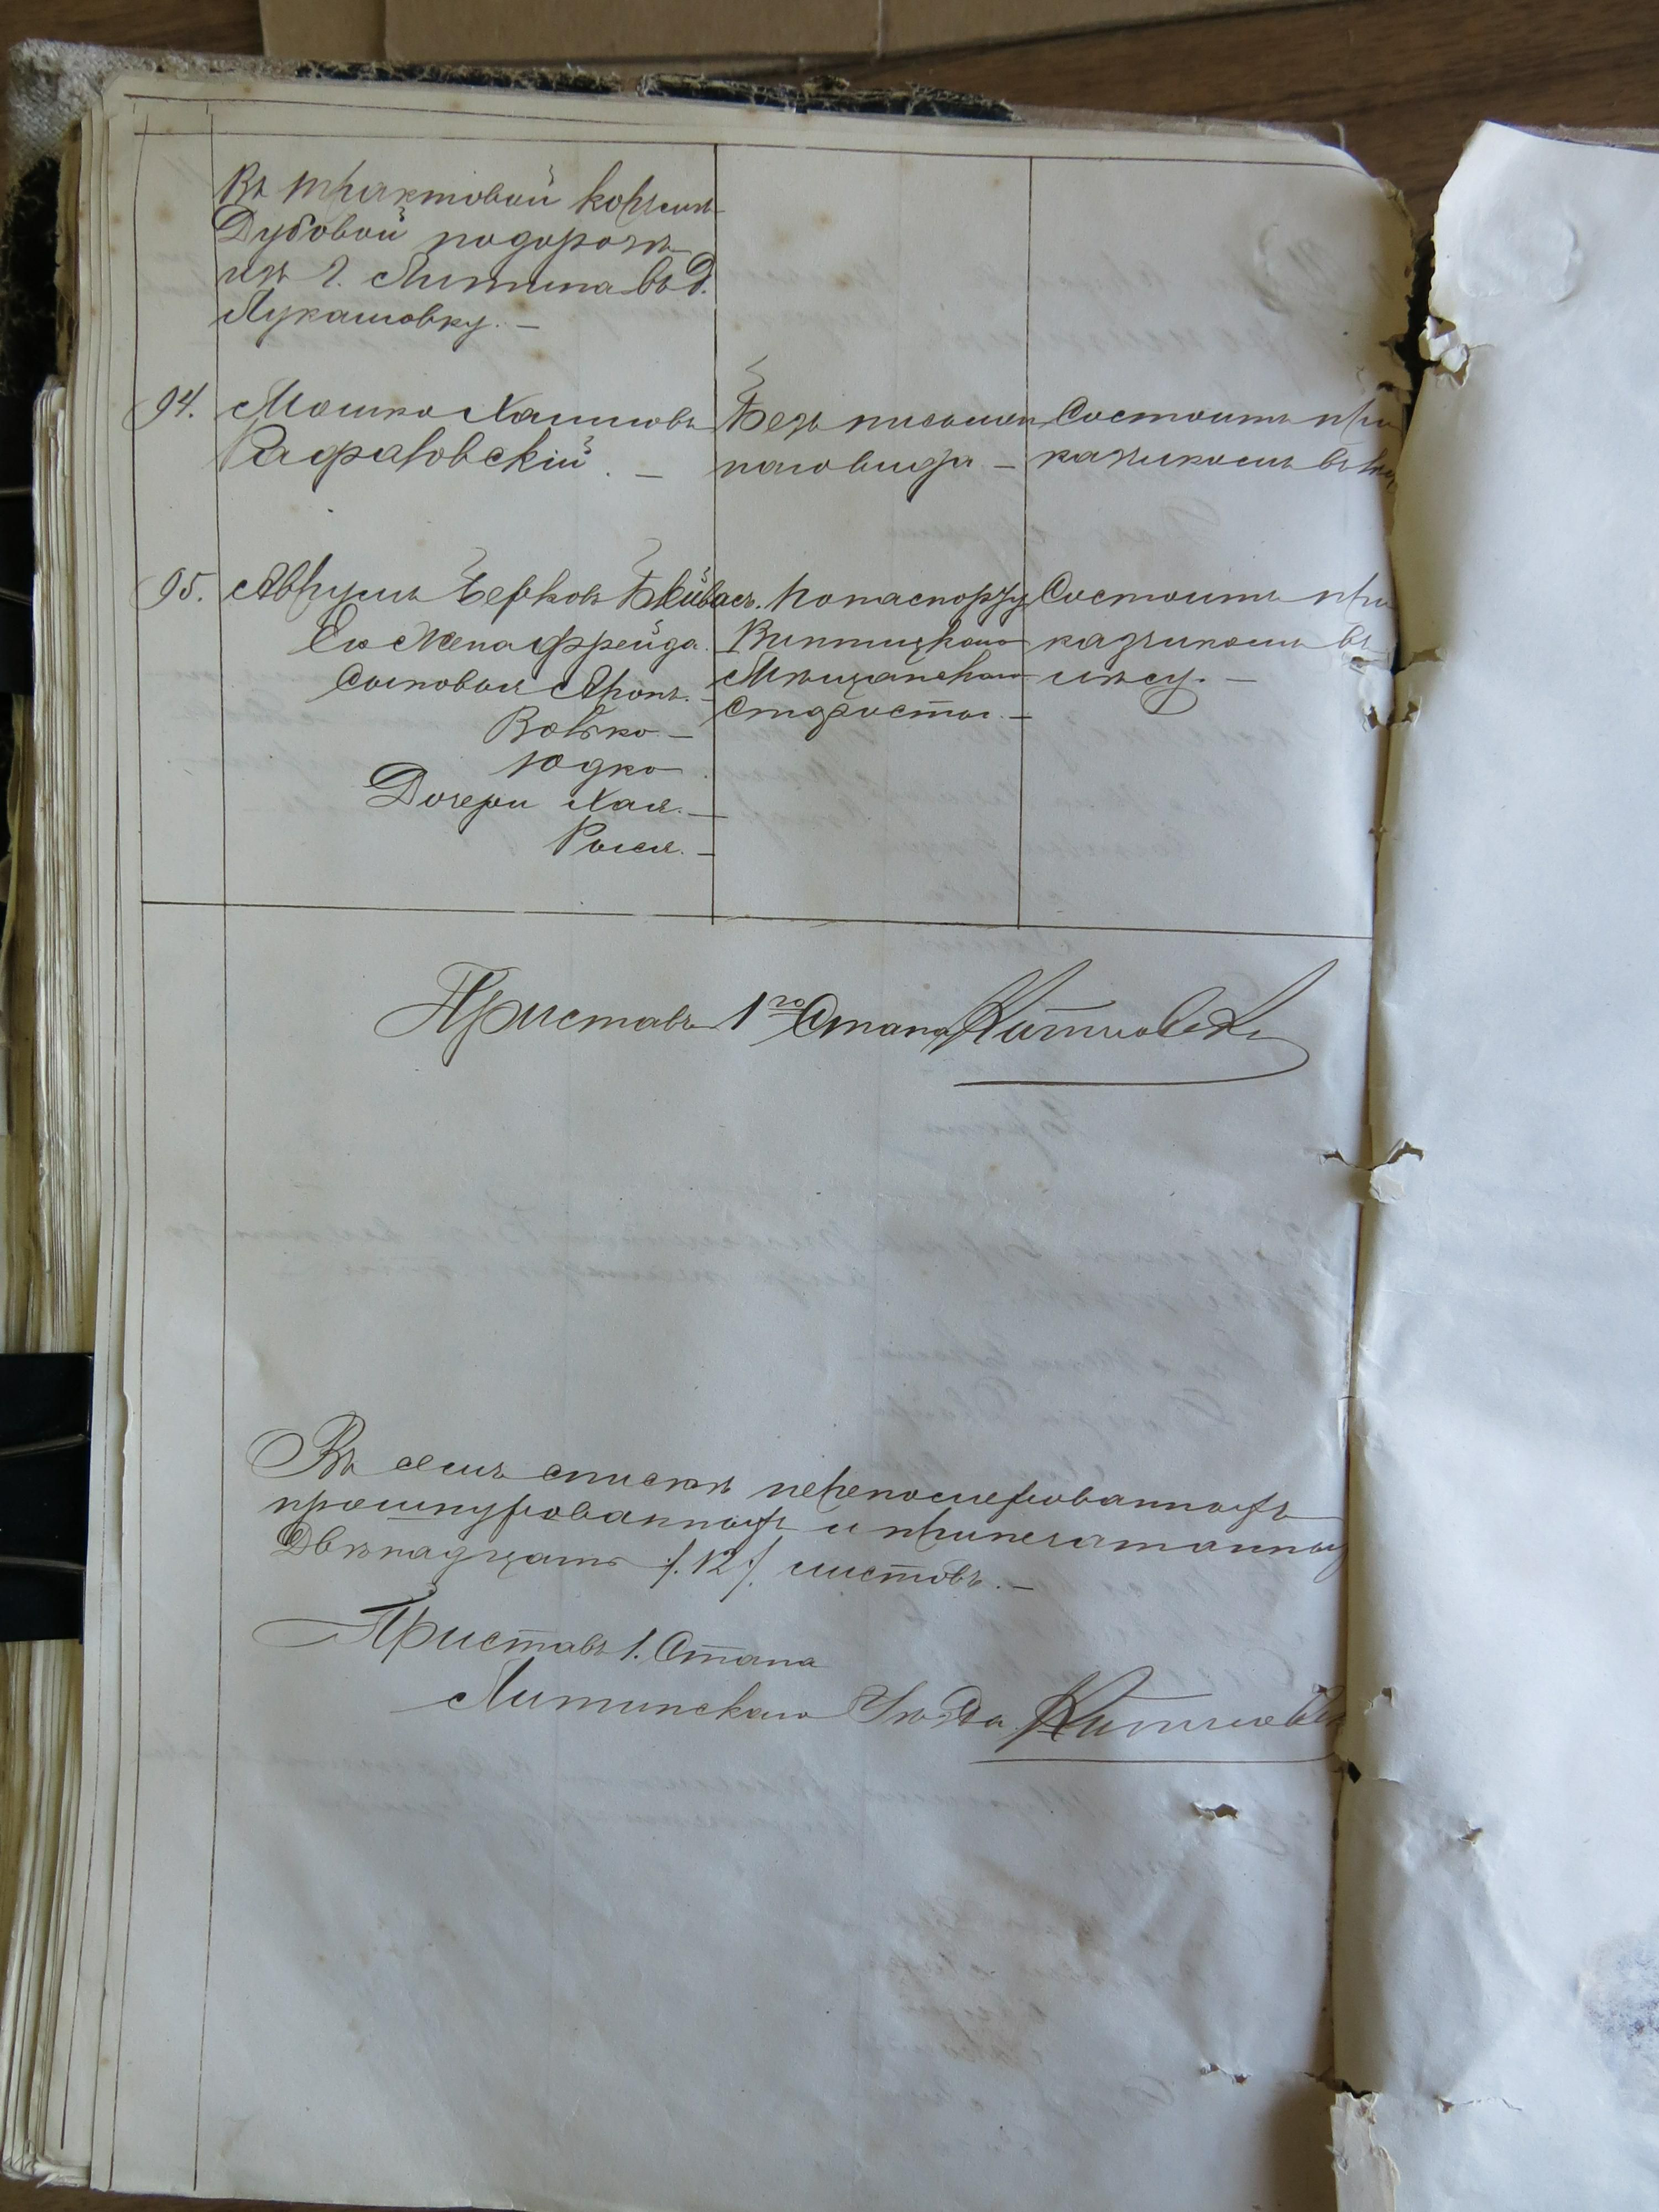 Въ трактовой корчмѣ
Дубовой подорозѣ
изъ г. Литина въ д.
Лукашовку. —
94. Мошко Хаимовъ
Рафаловскій. —
Безъ письмен
наго вида —
Состоитъ при
кащикомъ въ
95. Аврумъ Берковъ
Его жена Фрейда.
Сыновья Аронъ. —
Волько —
Юдко.
Дочери Хая. —
Рыся. —
по паспорту
Винницкаго
Мѣщанскаго
Старосты. —
Состоитъ при
кащикомъ въ
лѣсу. —
Приставъ 1го Стана
Въ семъ спискѣ перенумерованныхъ
прошнурованныхъ и припечатанныхъ
Двѣнадцать /.12/. листовъ. —
Приставъ 1. Стана
Литинскаго Уѣзда